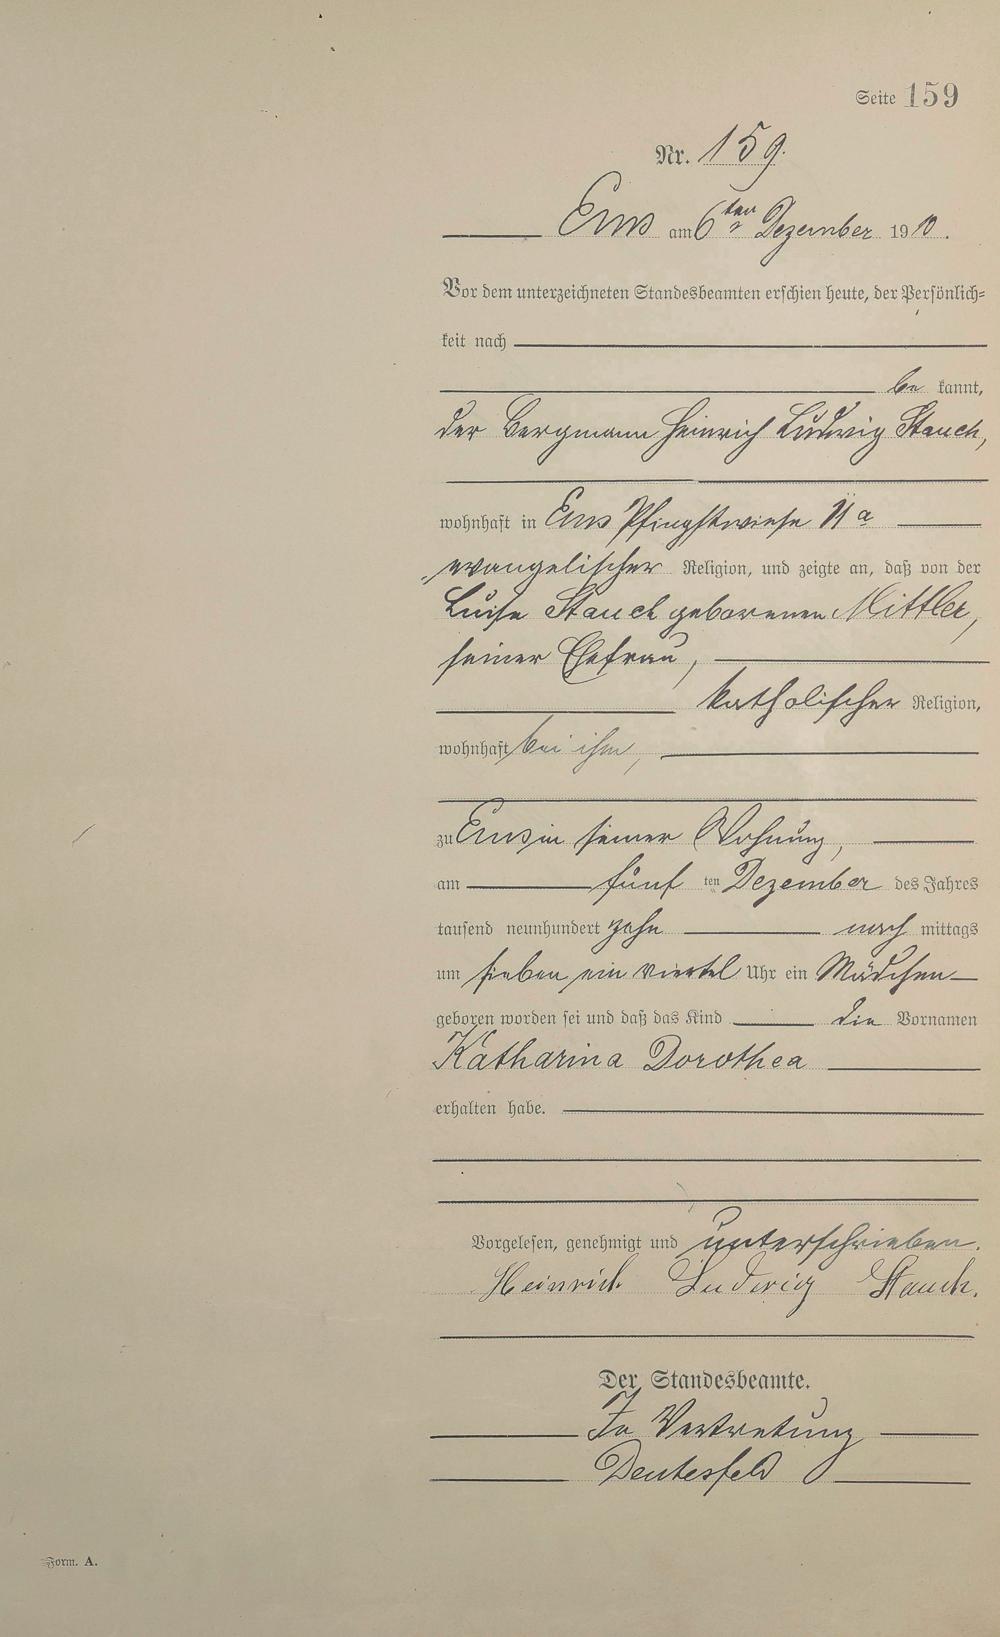 Seite 159
Nr. 159.
Ems am 6ten Dezember 1910.
Vor dem unterzeichneten Standesbeamten erschien heute, der Persönlich=
keit nach
be kannt,
der Bergmann Heinrich Ludwig Stauch,
wohnhaft in Ems Pfingstwiese 11a
evangelischer Religion, und zeigte an, daß von der
Luise Stauch geborenen Mittler,
seiner Ehefrau,
katholischer Religion,
wohnhaft bei ihm,
zu Ems in seiner Wohnung,
am fünf ten Dezember des Jahres
tausend neunhundert zehn nach mittags
um sieben ein viertel Uhr ein Mädchen
geboren worden sei und daß das Kind die Vornamen
Katharina Dorothea
erhalten habe.
Vorgelesen, genehmigt und unterschrieben.
Heinrich Ludwig Stauch.
Der Standesbeamte.
In Vertretung
Deutesfeld
Form. A.